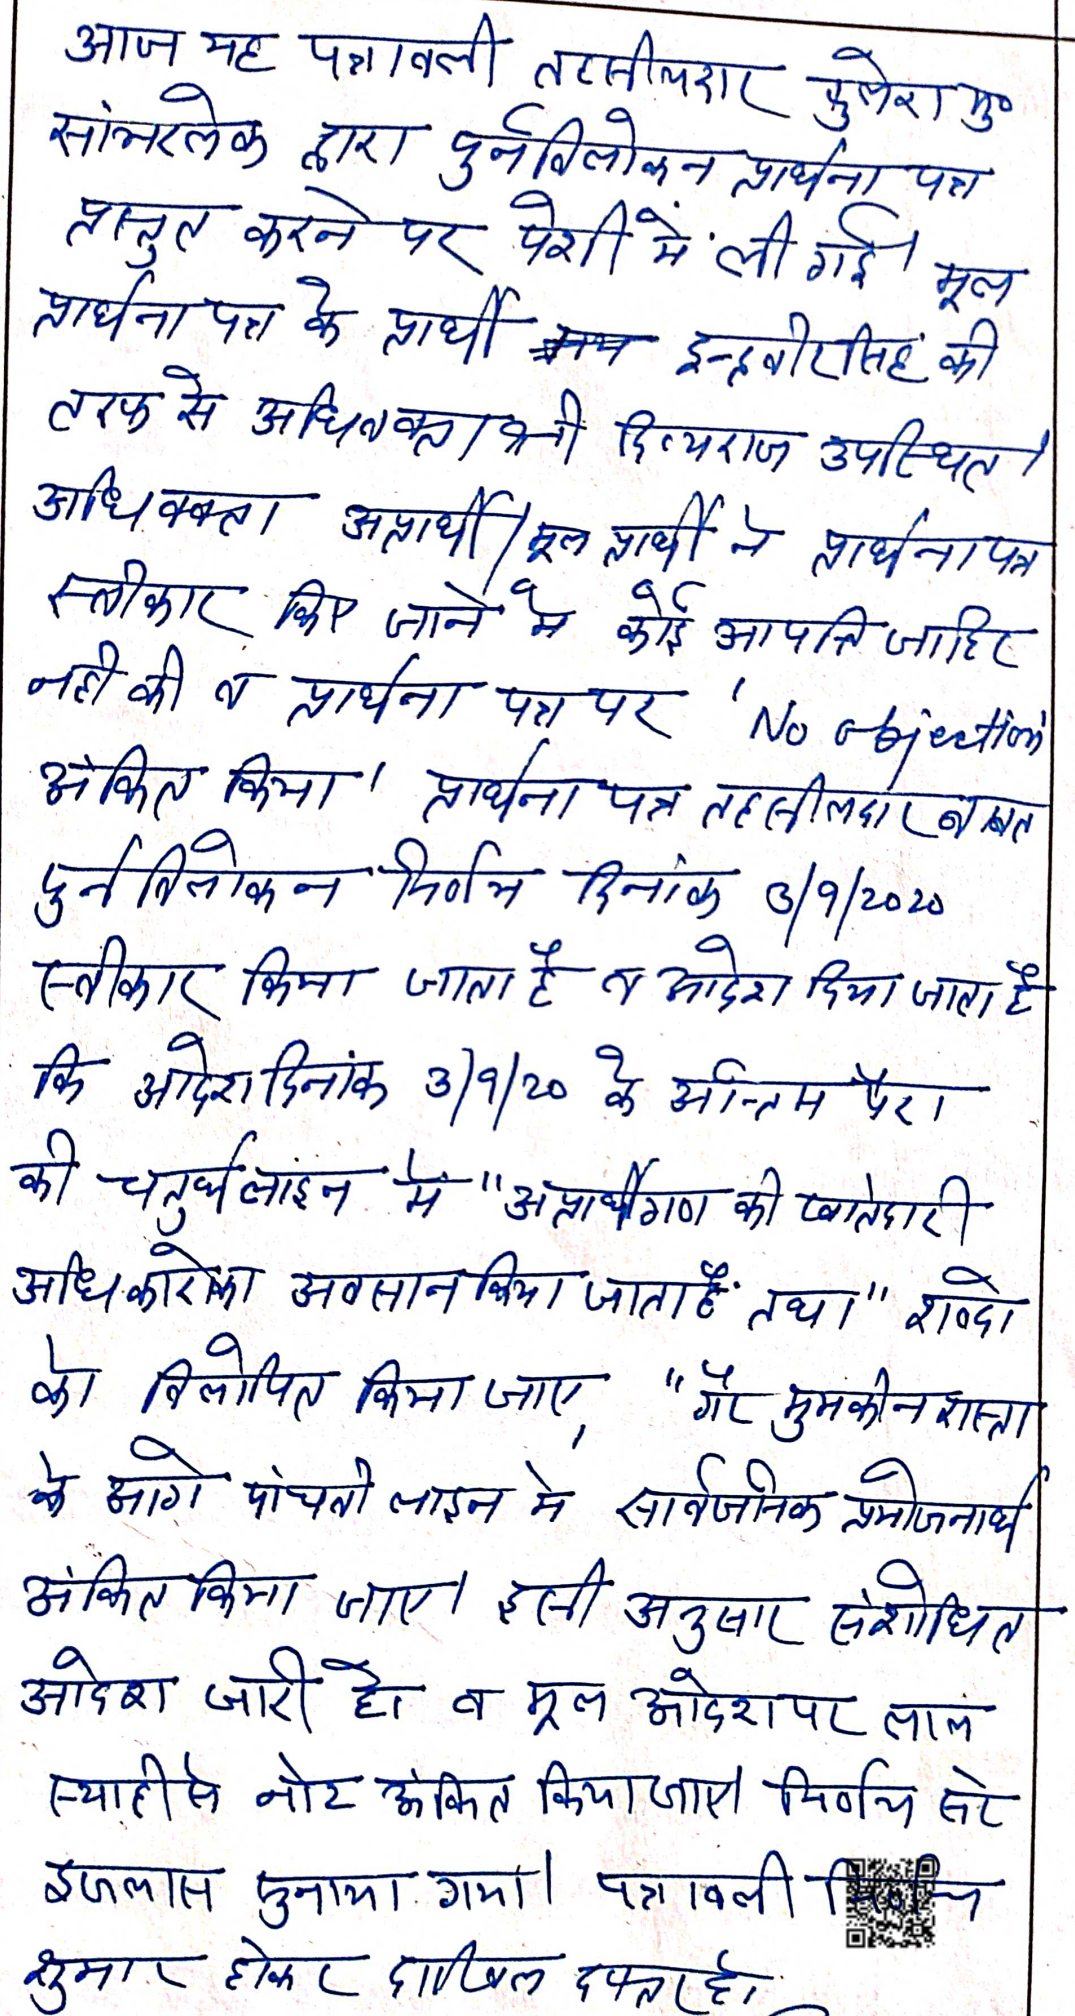 आज यह पत्रावली तहसीलदार फुलेरा मु०
सांभरलेक द्वारा पुर्नविलोकन प्रार्थना पत्र
प्रस्तुत करने पर पेशी में ली गई। मूल
प्रार्थना पत्र के प्रार्थी इन्द्रवीरसिंह की
तरफ से अधिवक्ता श्री दिव्यराज उपस्थित।
अधिवक्ता अप्रार्थी/मूल प्रार्थी ने प्रार्थना पत्र
स्वीकार किए जाने में कोई आपत्ति जाहिर
नही की व प्रार्थना पत्र पर 'No objection'
अंकित किया। प्रार्थना पत्र तहसीलदार बाबत
पुर्नविलोकन निर्णय दिनांक 3/9/2020
स्वीकार किया जाता है व आदेश दिया जाता है
कि आदेश दिनांक 3/9/20 के अन्तिम पैरा
की चतुर्थ लाइन में "अप्रार्थीगण की खातेदारी
अधिकारोका अवसान किया जाता है तथा" शब्दो
को विलोपित किया जाए, "गैर मुमकीन रास्ता
के आगे पांचवी लाइन में सार्वजनिक प्रयोजनार्थ
अंकित किया जाए। इसी अनुसार संशोधित
आदेश जारी हो व मूल आदेश पर लाल
स्याही से नोट अंकित किया जाए। निर्णय सरे
इजलास सुनाया गया। पत्रावली
शुमार होकर दाखिल दफ्तर हो।